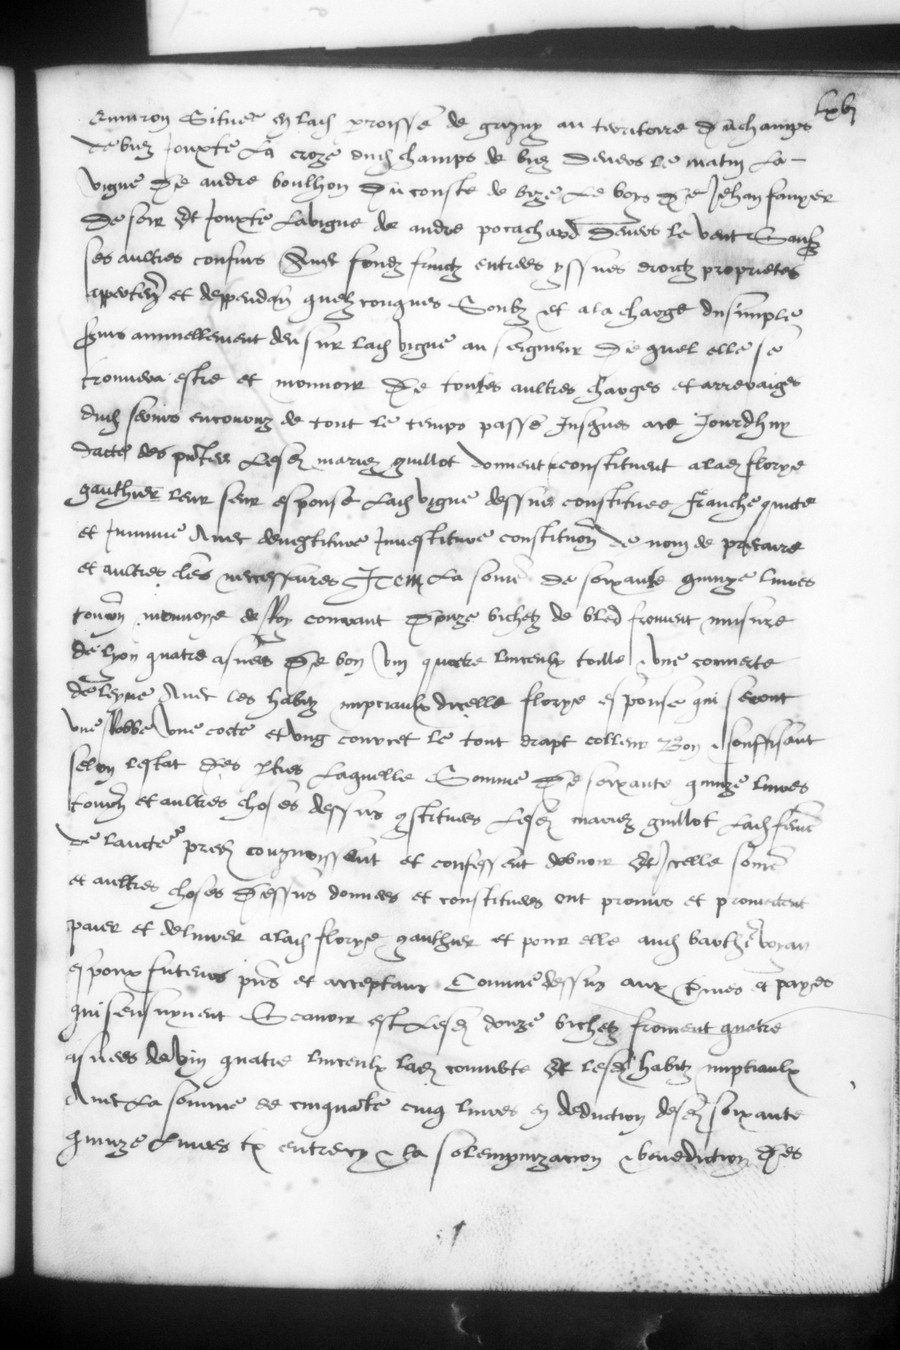 lxvj
Environ Situee en lad paroisse de grigny au territoire du champs
de biez Jouxte La croze dud champs de biez devers le matin La
vigne De andre boulhon Du couste de bize Le boys De Jehan
De soir Et Jouxte La vigne de andre pocachard Devers le vent Saufz
ses aultres confins Avec fondz fruictz entrees yssues droictz proprietes
apperten et deppendan quelzconques Soubz et a la charge du simple
annuellement deu sur lad vigne au seigneur De quel elle se
trouvera estre et mouvoir De toutes aultres charges et arreraiges
dud encouruz de tout le temps passe Jusques a ce Jourdhuy
datte des pntes Lesd mariez guillot donnent & constituent a lad florye
gauthier leur seur esponse Lad vigne dessus constituee franche quicte
et Jmmune Avec devestiture Jnvestiture constitution de nom de precaire
et aultres cles necessaires Item La some De soixante quinze livres
tourn monnoye de Roy courant Douze bichetz de bled froment mesure
de lyon quatre asnees De bon vin quatre linceulx toille Une couverte
de leyne Avec les habitz nuptiaulx dicelle florye esponse qui seront
une Robbe Une cotte et ung corcet le tout drapt colleur Bon & souffisant
selon lestat Des pties Laquelle Somme De soixante quinze livres
tourn et aultres choses dessus constituees Lesd mariez guillot Lad feme
de laucte pred cougnoissent et confessent debvoir Et Jcelle some
et aultres choses Dessus donnees et constituees ont promis et promectent
paier et delivrer a lad florye gauthier et pour elle aud barthe
espoux futeurs pns et acceptant Comme dessus aux termes et payes
qui sensuyvent Scavoir est Lesd douze bichetz froment quatre
asnees de vin quatre linceulx lad couverte Et lesd habitz nuptiaulx
Avec La somme de cinquante cinq livres en deduction desd soixante
quinze Livres tz entrecy & la solempnization & benediction Des